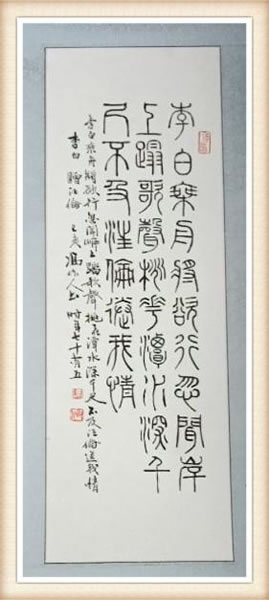 李白乘舟將欲行忽聞岸
上蹋歌聲桃花潭水深千
尺不及汪倫送我情
李白乘舟將欲行忽聞岸上踏歌聲桃花潭水深千尺不及汪倫送我情
李白 贈汪倫 亥 人書 時年七十有五